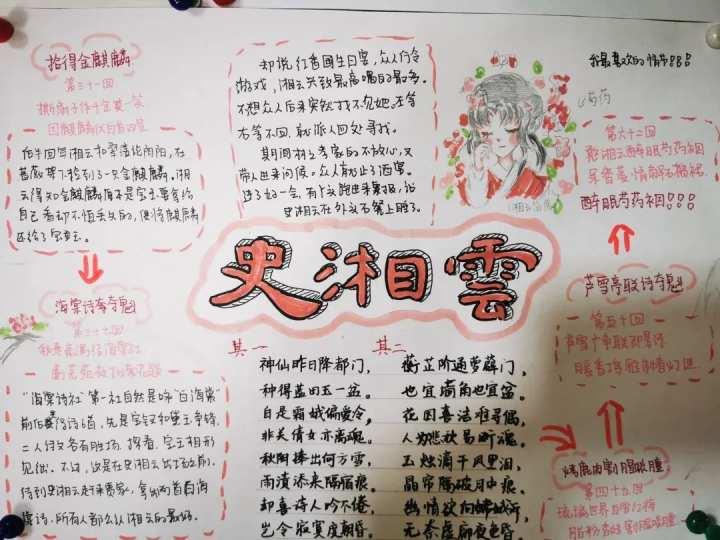 拾得金麒麟
第三十一回
撕扇子作千金一笑
因麒麟伏白首双星
在
到了一只金麒麟。湘
云得知金麒麟原不是宝玉要有给
自己看却不慎丢失的,便将麒麟
还给了宝玉。
海棠诗夺魁
第三十七回
秋爽斋偶结海棠社
蘅芜苑夜拟菊花题
“海棠诗社”第一社自然是咏“白海棠”
先是宝钗和黛玉争锋,
二人诗文各有胜场。探春、宝玉相形
见绌。不过,这是在史湘云出场之前,
待到史湘云赶来贾家,拿出两首白海
棠诗,所有人都公认湘云的最好。
却说,红香圃生日宴,众人行令
游戏,湘云失败最高喝的最多。
不想众人后来突然找不见她,左等
右等不回,就派人四处寻找。
期间林之孝家的不放心,又
带人来问候。众人劝止了酒宴。
过了好一会,有个丫头跑进来取乐,说
史湘云在外头石凳上睡了。
我最喜欢的情节!!!
芍药
第六十二回
憨湘云醉眠芍药裀
呆香菱情解石榴裙
醉眠芍药裀!!!
史湘雲
芦雪亭联诗夺魁
第五十回
芦雪广争联即景诗
暖香坞雅制春灯谜
烤鹿肉割腥啖膻
第四十九回
琉璃世界白雪红梅
脂粉香娃割腥啖膻
其一
神仙昨日降都门,
种得蓝田玉一盆。
自是霜娥偏爱冷,
非关倩女亦离魂。
秋阴捧出何方雪,
雨渍添来隔宿痕。
却喜诗人吟不倦,
岂令寂寞度朝昏。
其二
蘅芷阶通萝薜门,
也宜墙角也宜盆。
花因喜洁难寻偶,
人为悲秋易断魂。
玉烛滴干风里泪,
晶帘隔破月中痕。
幽情欲向嫦娥诉,
无奈虚廊夜色昏